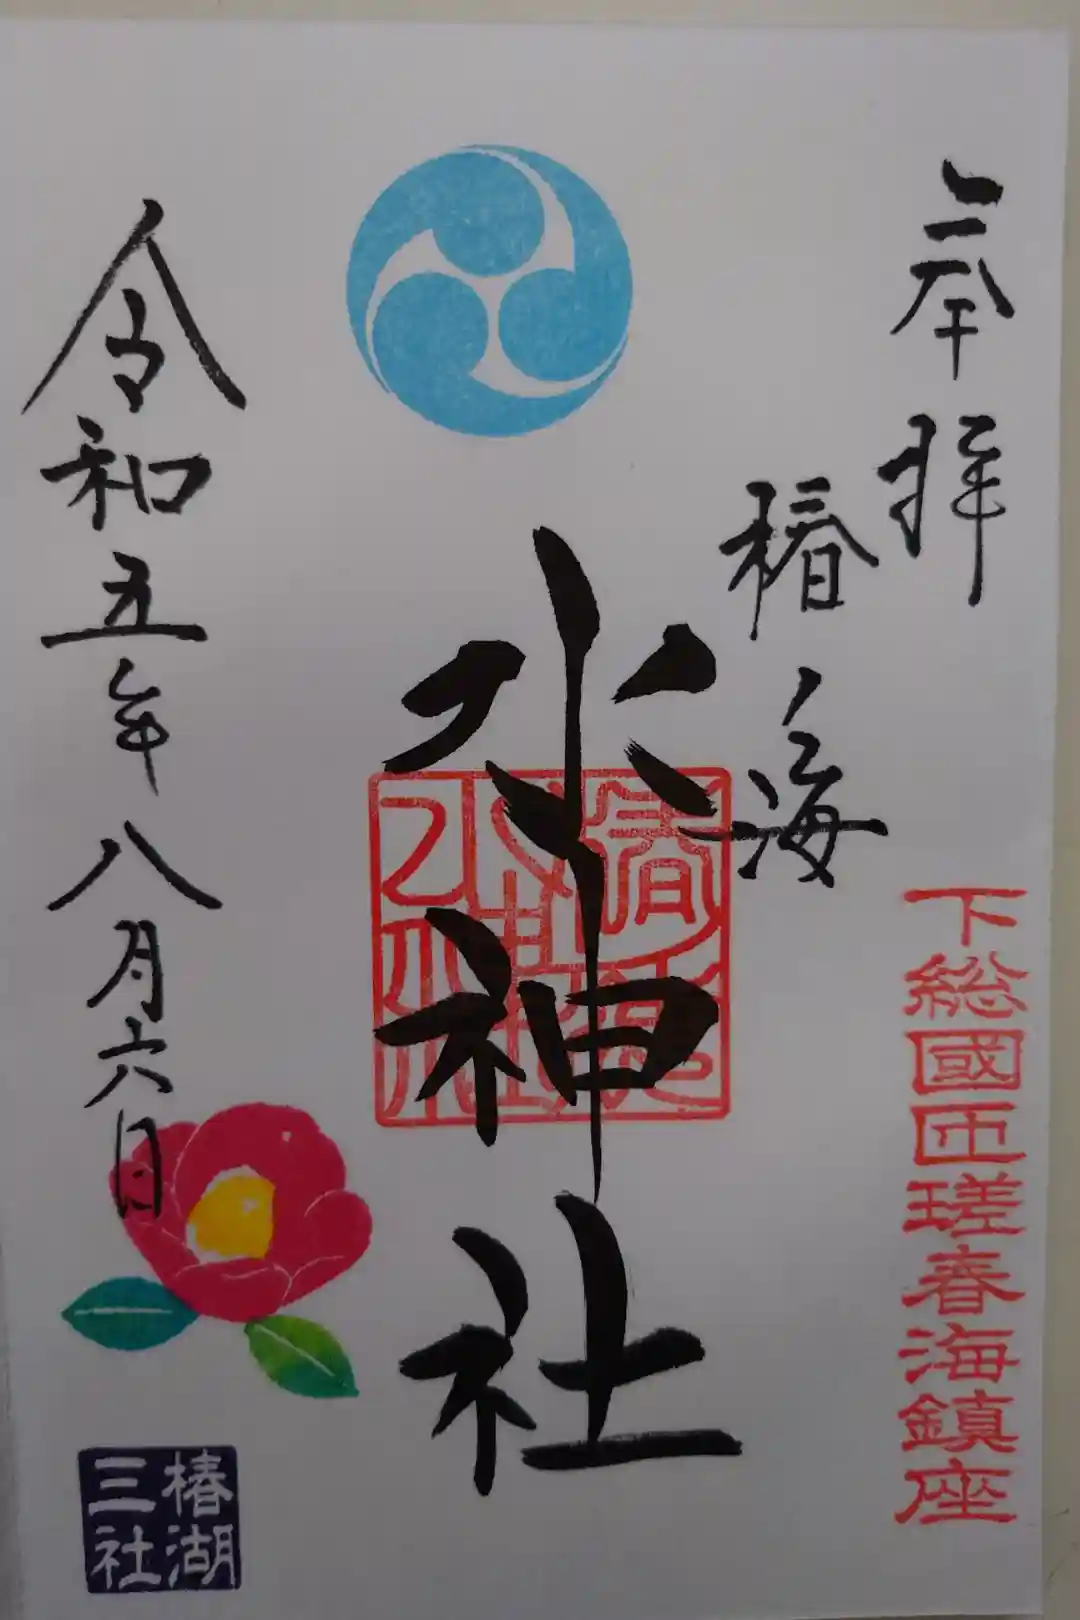 奉拝
椿海
下総國匝瑳春海鎮座
水神社
令和五年八月六日
椿湖
三社